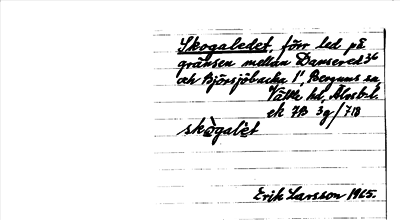 Skogaledet, förr led på
gränsen mellan Dansered 3⁶
och Björsjöbacka 1¹, Bergums sn
Vättle hd, Älvsb.l.
ek 7B 3g/71B
skògalèt
Erik Larsson 1965.